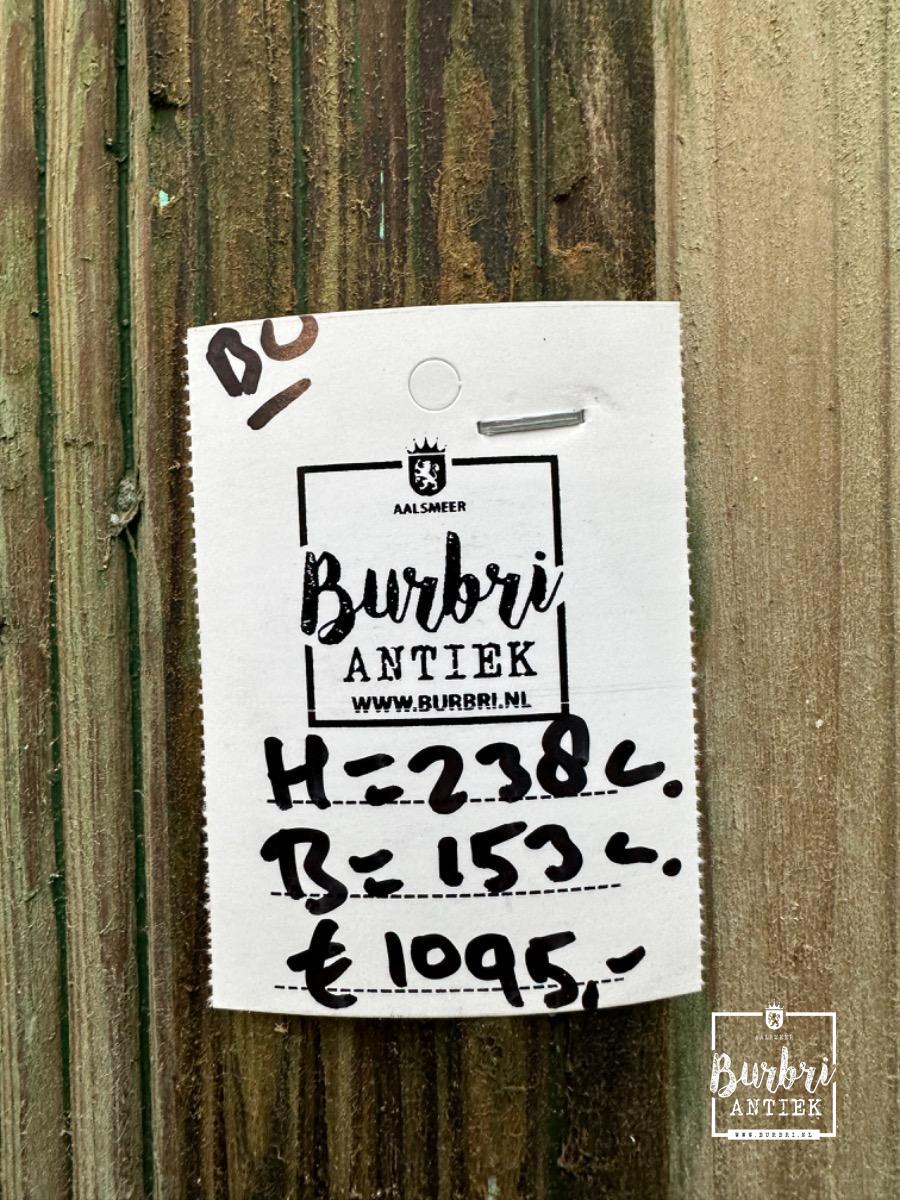 BU
AALSMEER
Burbri
ANTIEK
WWW.BURBRI.NL
H=238c.
B=153c.
€1095,-
AALSMEER
Burbri
ANTIEK
WWW.BURBRI.NL